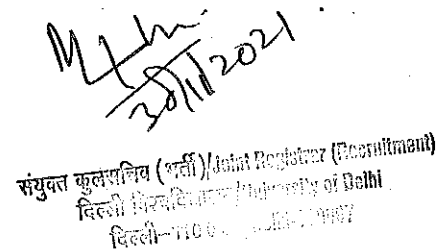 30/11/2021
संयुक्त कुलसचिव (भर्ती)/Joint Registrar (Recruitment)
दिल्ली विश्वविद्यालय/University of Delhi
दिल्ली-11000